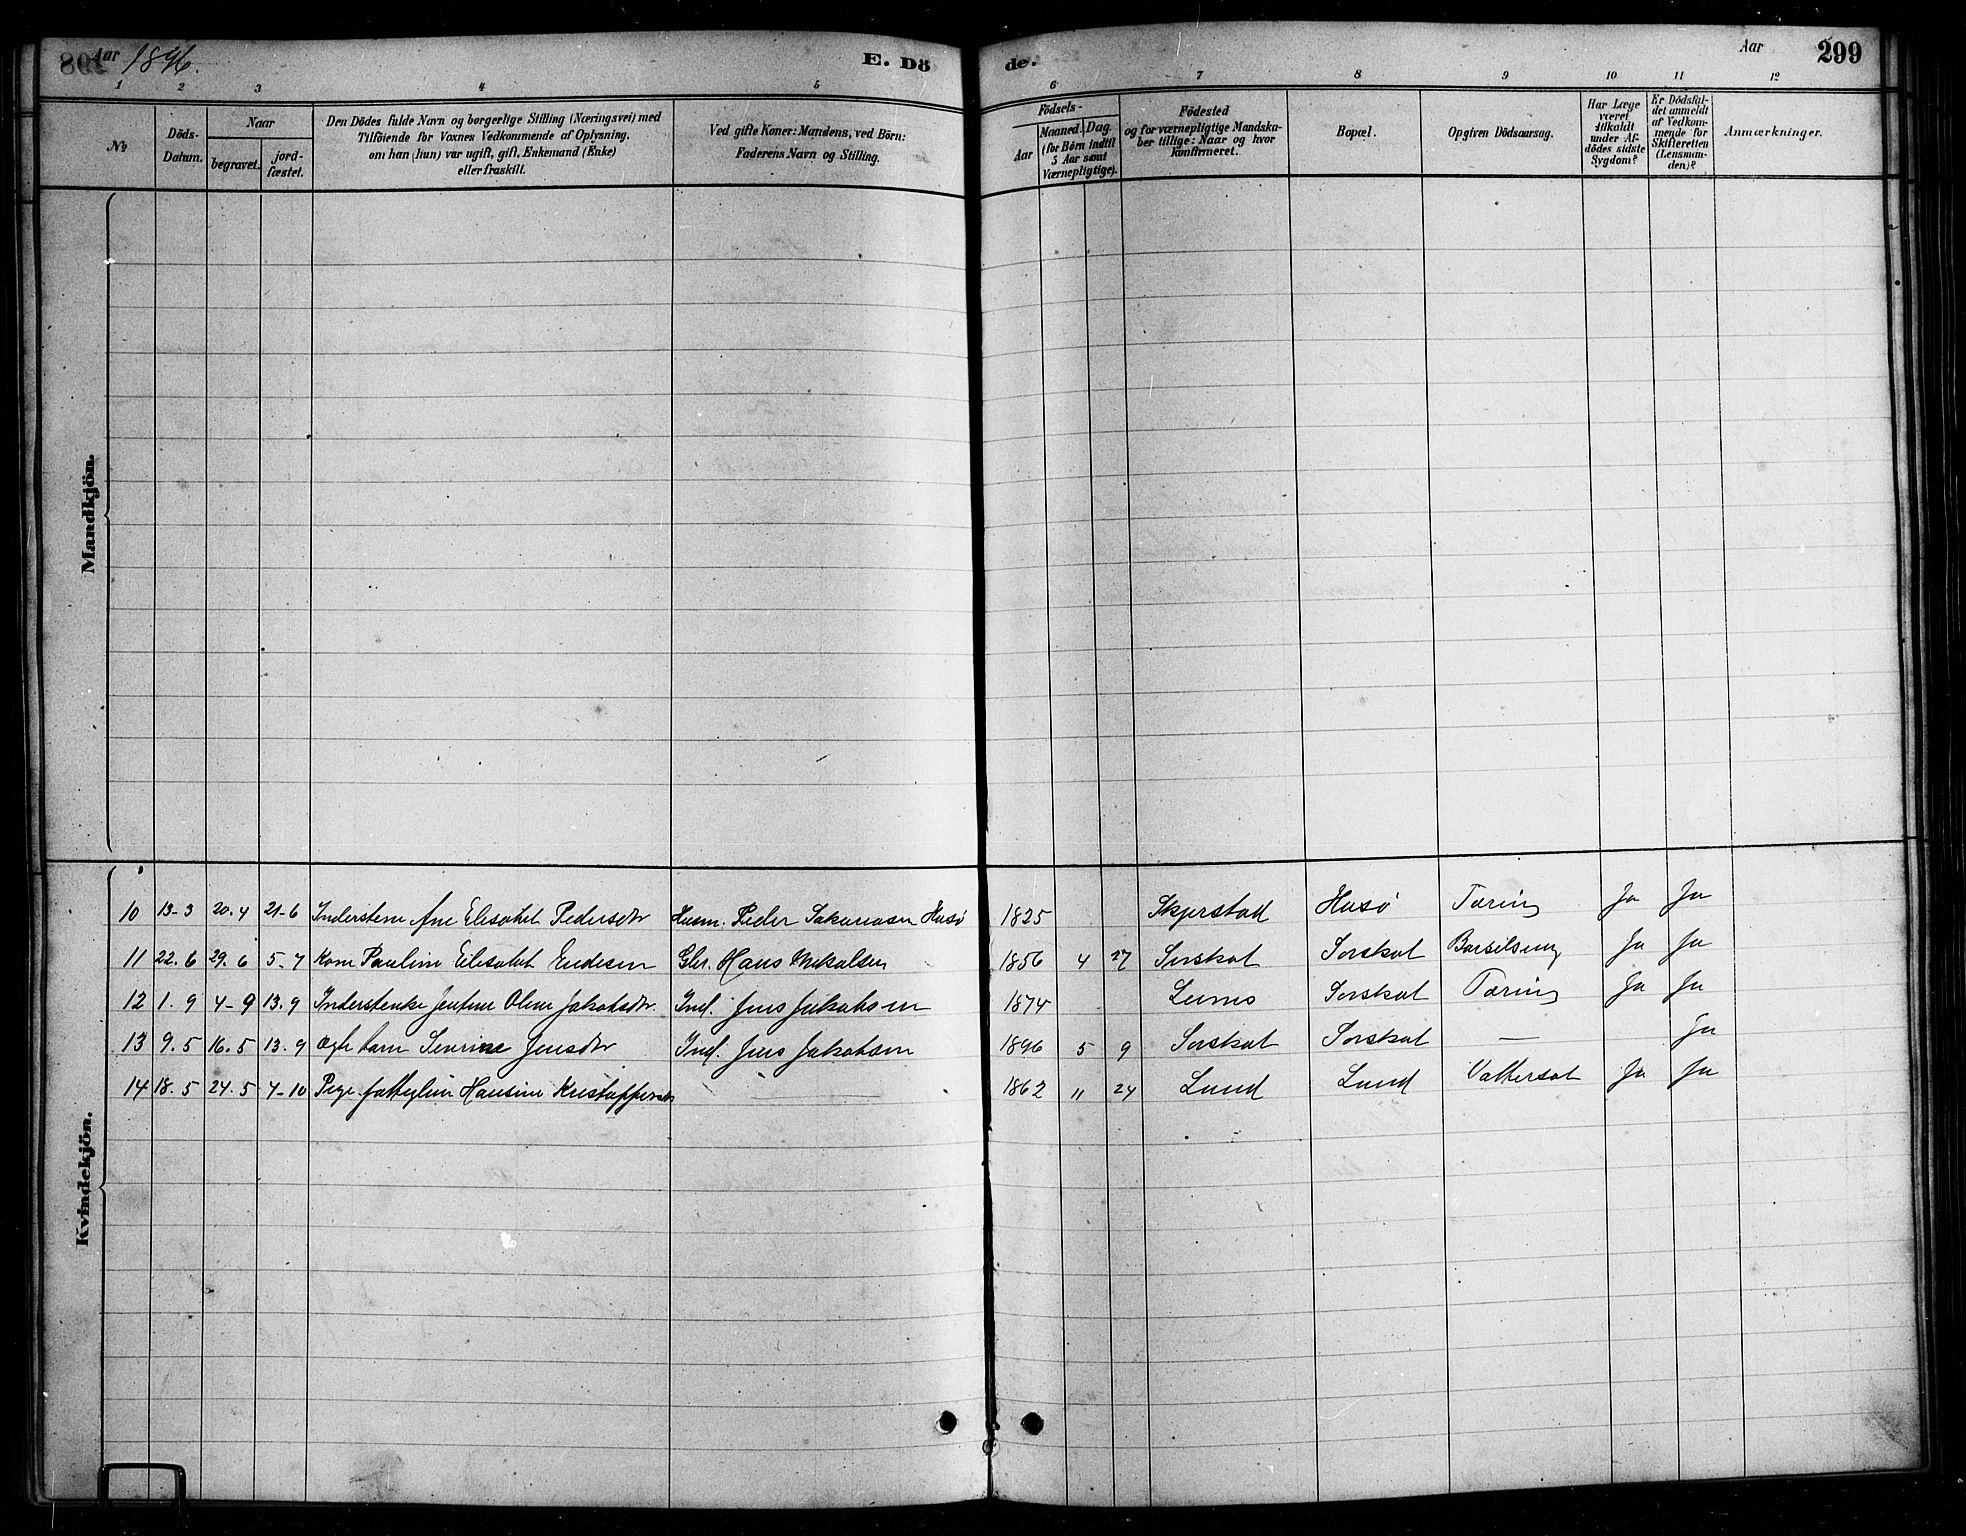 Aar 1896.
E. Dö
de.
Aar
299
1 2 3 4 5 6 7 8 9 10 11 12
No
Döds-
Datum.
Naar
begravet.
jord-
fæstet.
Den Dödes fulde Navn og borgerlige Stilling (Næringsvei) med
Tilföiende for Voxnes Vedkommende af Oplysning,
om han (hun) var ugift, gift, Enkemand (Enke)
eller fraskilt.
Ved gifte Koner: Mandens, ved Börn:
Faderens Navn og Stilling.
Födsels-
Aar
Maaned. Dag.
(for Börn indtil
5 Aar samt
Værnepligtige).
Födested
og for værnepligtige Mandska-
ber tillige: Naar og hvor
Konfirmeret.
Bopæl.
Opgiven Dödsaarsag.
Har Læge
været
tilkaldt
under Af-
dödes sidste
Sygdom?
Er Dödsfal-
det anmeldt
af Vedkom-
mende for
Skifteretten
(Lensman-
den)?
Anmærkninger.
Mandkjön.
Kvindekjön.
10 13-3 20.4 21-6 Ane Elisabet Pedersdtr Husm. Peder Sakariasen Husö 1825 Skjerstad Husö Tæring Ja Ja
11 22.6 29.6 5-7 Kone Pauline Elisabet Endesen Gbr. Hans Mikalsen 1856 4 27 Sorskot Sorskot Barselseng Ja Ja
12 1.9 4-9 13.9 Jentine Oline Jakobsdtr. Ind. Jens Jakobsen 1874 Sorskot Tæring Ja Ja
13 9.5 16.5 13.9 Ægte barn Sevrine Jensdtr Ind. Jens Jakobsen 1896 5 9 Sorskot Sorskot — Ja
14 18.5 24.5 4-10 Pige Hansine Kristoffersdtr — 1862 11 24 Lund Lund Vattersot Ja Ja